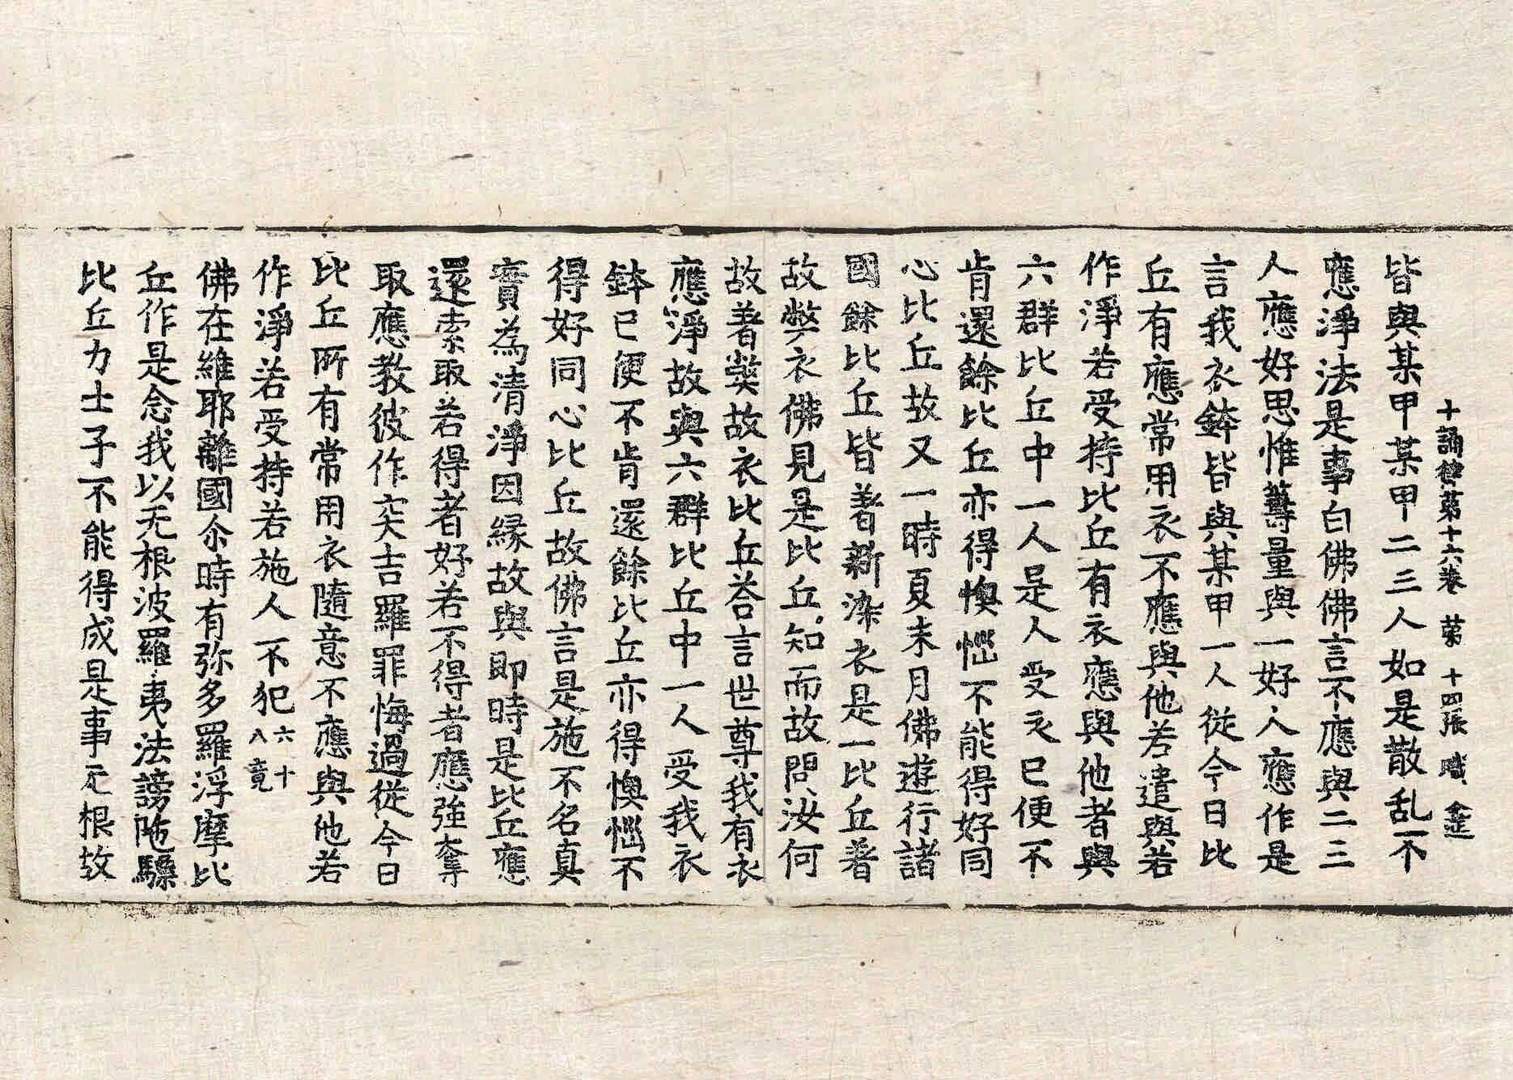 十誦律第十六卷 第十四張 職
皆與某甲某甲二三人如是散乱不
應淨法是事白佛佛言不應與二三
人應好思惟籌量與一好人應作是
言我衣鉢皆與某甲一人從今日比
丘有應常用衣不應與他若遣與若
作淨若受持比丘有衣應與他者與
六群比丘中一人是人受衣已便不
肯還餘比丘亦得懊惱不能得好同
心比丘故又一時夏末月佛遊行諸
國餘比丘皆著新染衣是一比丘著
故弊衣佛見是比丘知而故問汝何
故著弊故衣比丘荅言世尊我有衣
應淨故與六群比丘中一人受我衣
鉢已便不肯還餘比丘亦得懊惱不
得好同心比丘故佛言是施不名真
實為清淨因緣故與即時是比丘應
還索取若得者好若不得者應強奪
取應教彼作突吉羅罪悔過從今日
比丘所有常用衣隨意不應與他若
作淨若受持若施人不犯六十八竟
佛在維耶離國尒時有弥多羅浮摩比
丘作是念我以无根波羅夷法謗陁驃
比丘力士子不能得成是事无根故